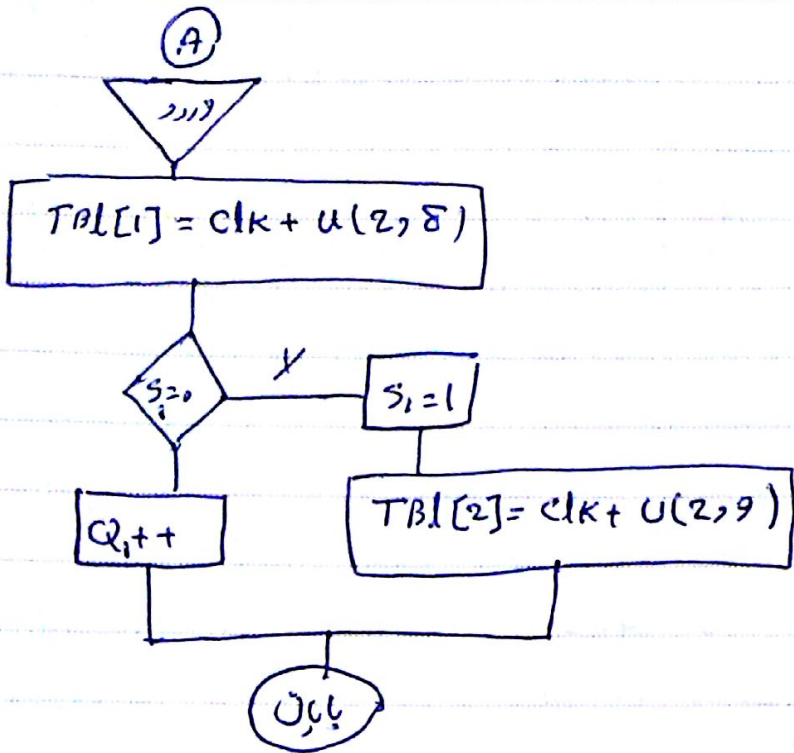 A
ورود
TBL[1] = clk + U(2, 8)
S₁=0
Y
S₁=1
Q₁++
TBL[2] = clk + U(2, 9)
پایان